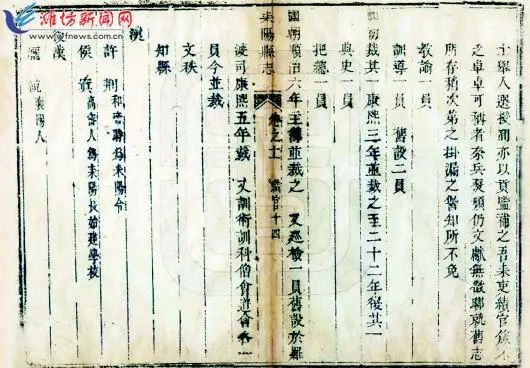 潍坊新闻网
士舉人選後則亦以貢監補之吾耒吏績官
之卓卓可稱者奈兵燹頻仍文獻無徵聊就舊志
所存稍次第之掛漏之知所不免
教諭一員
訓導一員 舊設二員
朝裁其一康熙三年並裁之至二十二年復其一
典史一員
把總一員
國朝順治六年主簿並裁之 又巡檢一員舊設於羅
耒陽縣志 卷之十 職官 十四
渡司康熙五年裁 又訓術訓科僧會道會各一
員今並裁
文秩
知縣
漢
許 荆 和帝時為耒陽令
侯 高密人為耒陽長始建學校
漢
耒陽人